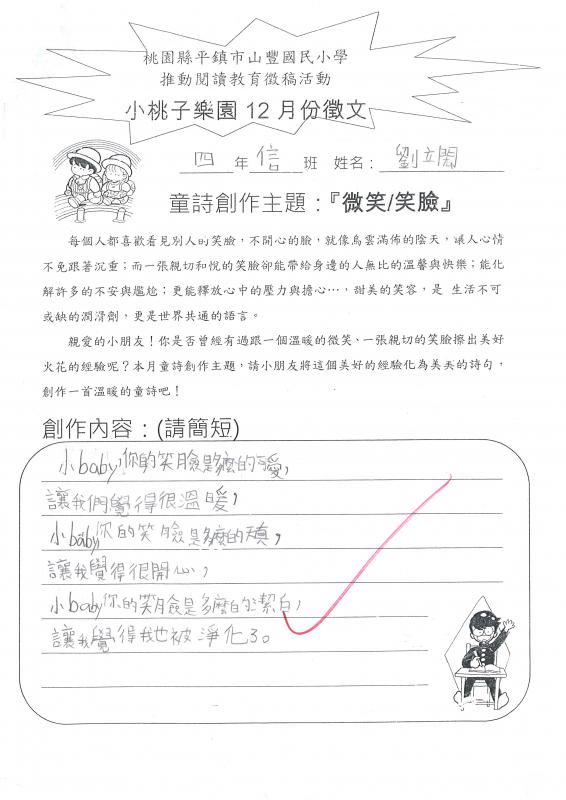 桃園縣平鎮市山豐國民小學
推動閱讀教育徵稿活動
小桃子樂園 12 月份徵文
四 年 信 班 姓名：劉立閎
童詩創作主題：『微笑/笑臉』
每個人都喜歡看見別人的笑臉，不開心的臉，就像烏雲滿佈的陰天，讓人心情
不免跟著沉重；而一張親切和悅的笑臉卻能帶給身邊的人無比的溫馨與快樂；能化
解許多的不安與尷尬；更能釋放心中的壓力與擔心…，甜美的笑容，是 生活不可
或缺的潤滑劑，更是世界共通的語言。
親愛的小朋友！你是否曾經有過跟一個溫暖的微笑、一張親切的笑臉擦出美好
火花的經驗呢？本月童詩創作主題，請小朋友將這個美好的經驗化為美美的詩句，
創作一首溫暖的童詩吧！
創作內容：(請簡短)
小baby，你的笑臉是多麼的可愛，
讓我們覺得很溫暖，
小baby，你的笑臉是多麼的天真，
讓我覺得很開心，
小baby你的笑臉是多麼的潔白，
讓我覺得我也被淨化了。